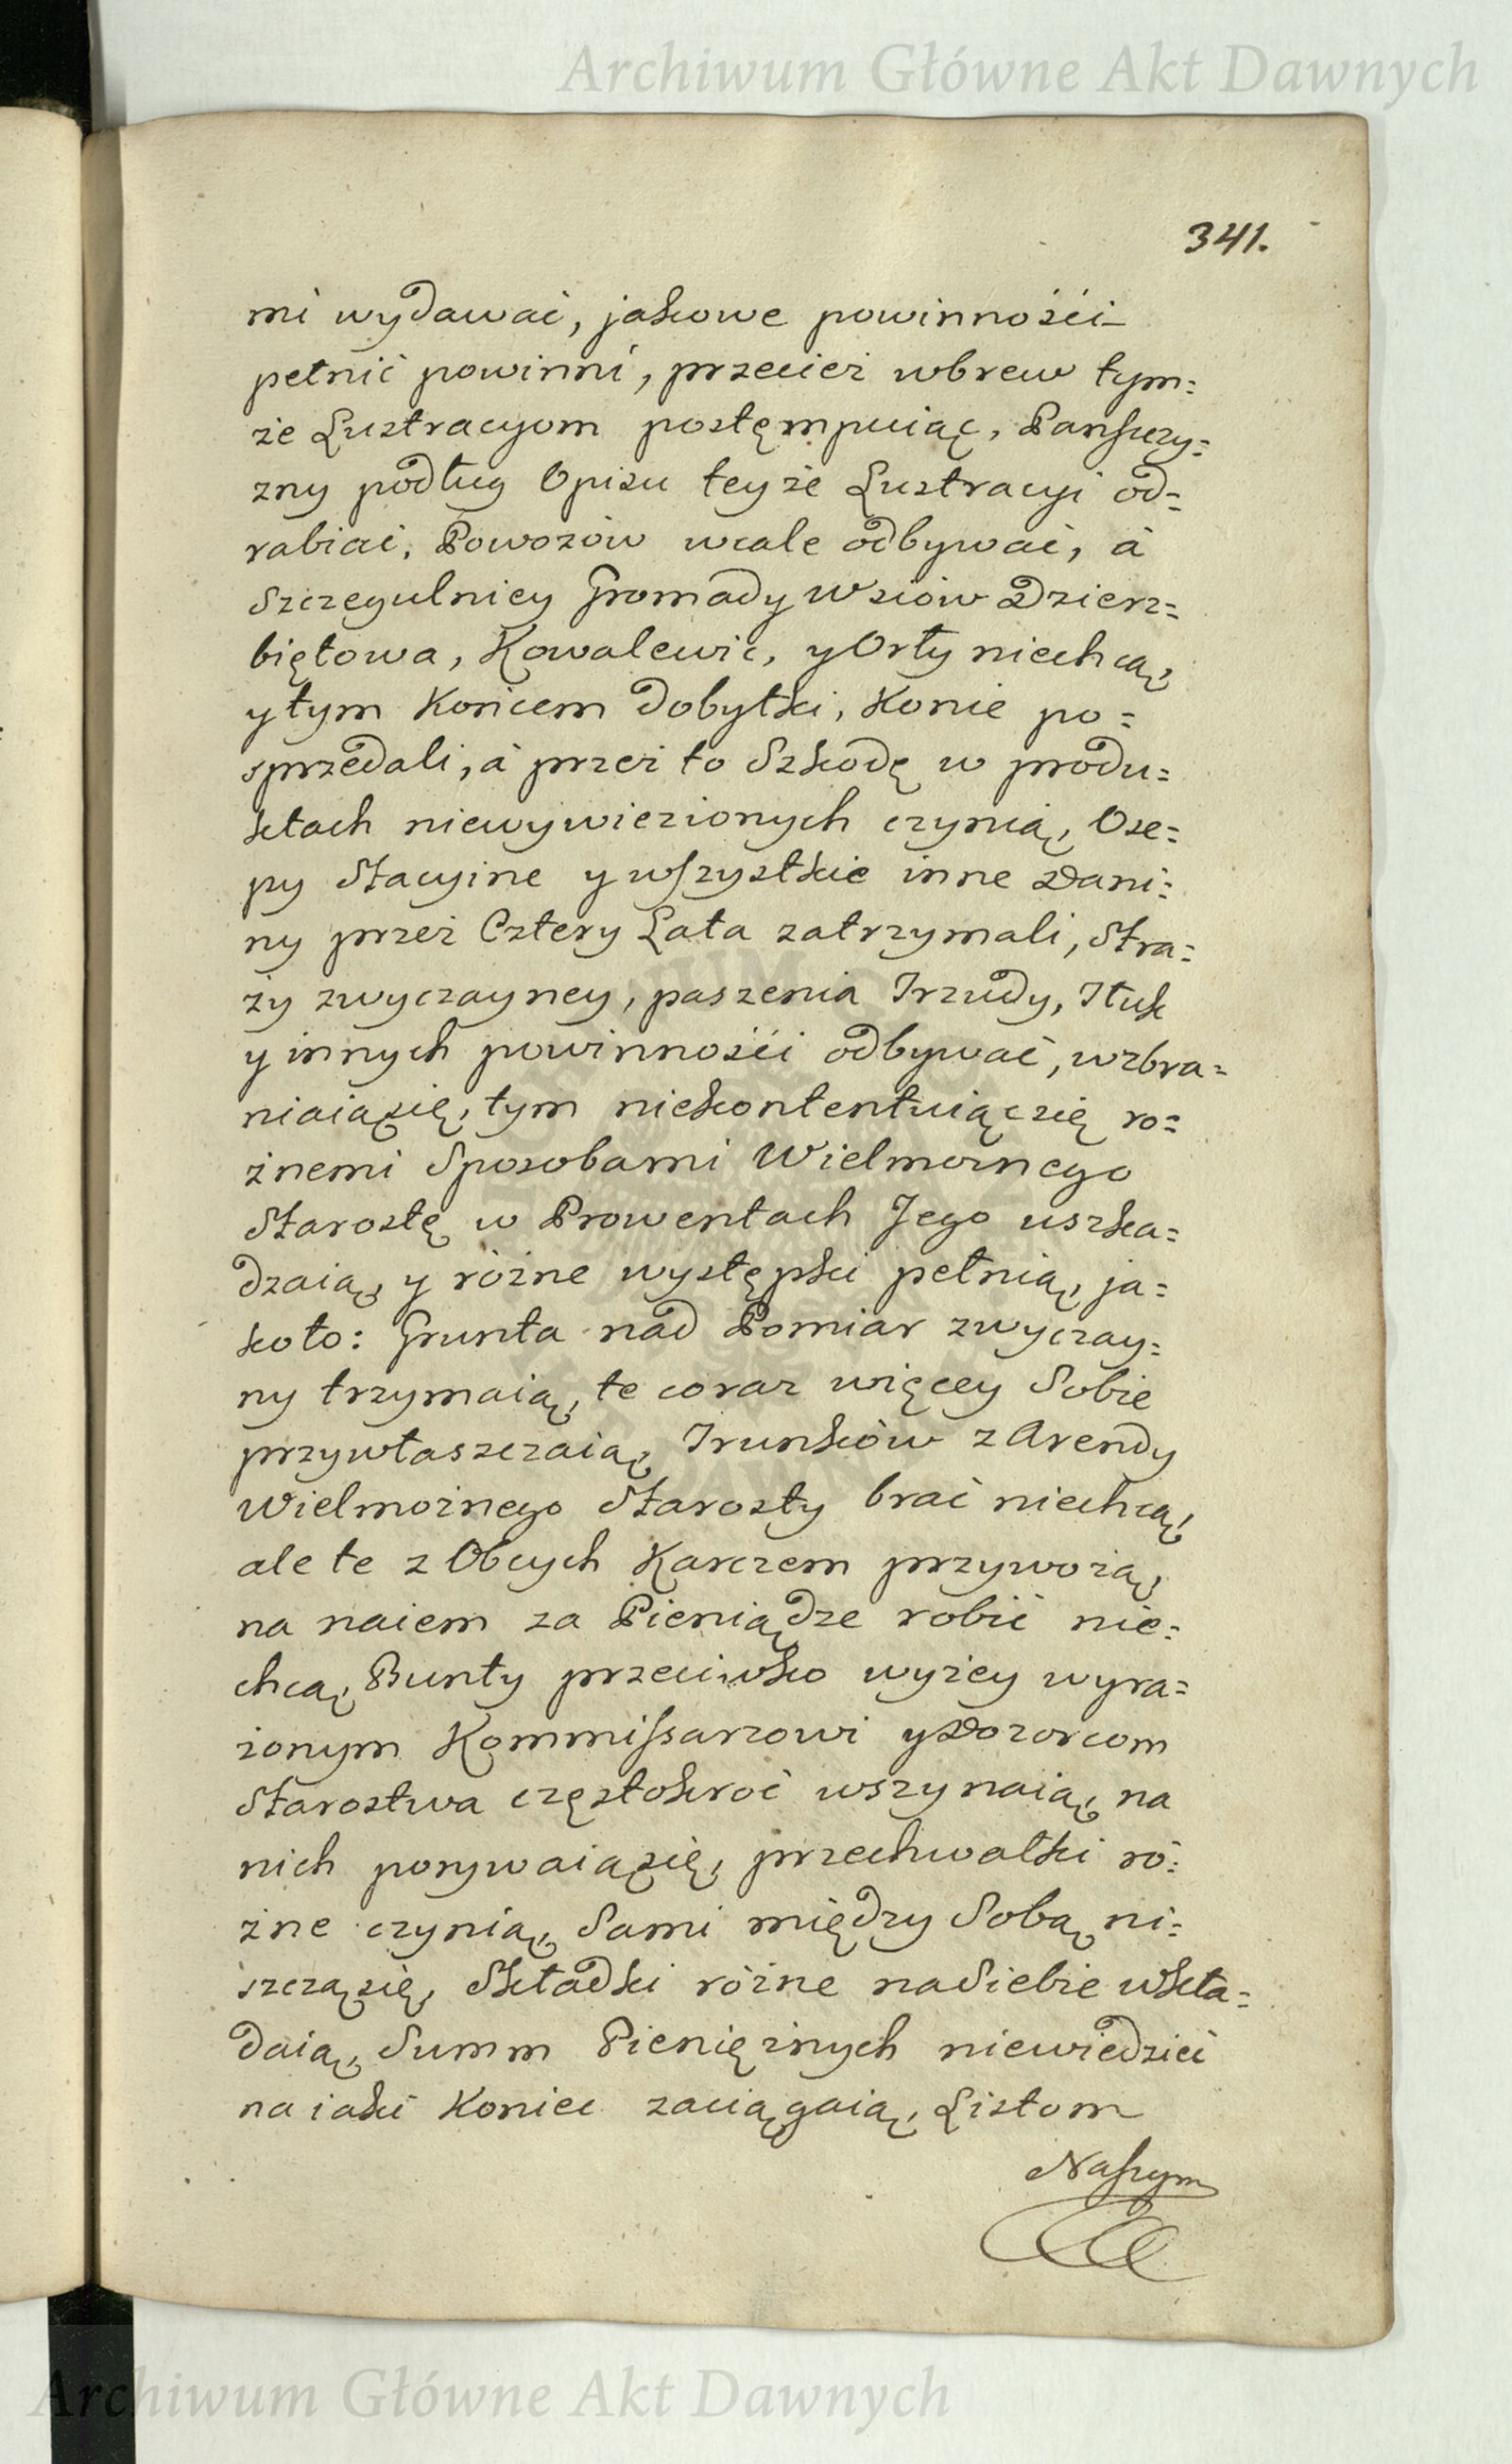 Archiwum Główne Akt Dawnych
341.
mi wydawać, jakowe powinności
pełnić powinni, przecież wbrew tym=
że Lustracyom postęmpuiąc, Pańszczy=
zny podług Opisu teyże Lustracyi od=
rabiać, Powozów wcale odbywać, á
Szczegulniey Gromady Wsiów Dzierz=
biętowa, Kowalewic, y Orły niechcą,
y tym Końcem Dobytki, Konie po=
sprzedali, á przez to Szkodę w produ=
ktach niewywiezionych czynią, Ose=
py Stacyine y wszystkie inne Dani=
ny przez Cztery Lata zatrzymali, Stra=
ży zwyczayney, paszenia Trzudy, Tłuk
y innych powinności odbywać, wzbra=
niaiąsię, tym niekontentuiącsię ro=
żnemi Sposobami Wielmożnego
Starostę w Prowentach Jego uszka=
dzaią, y różne występki pełnią, ja=
koto: Grunta nad Pomiar zwyczay=
ny trzymaią, te coraz więcey Sobie
przywłaszczaią, Trunków z Arendy
Wielmożnego Starosty brać niechcą,
ale te z Obcych Karczem przywożą,
na naiem za Pieniądze robić nie=
chcą, Bunty przeciwko wyżey wyra=
żonym Kommissarzowi y Dozorcom
Starostwa częstokroć wszynaią, na
nich porywaiąsię, przechwałki ró=
żne czynią, Sami między Sobą ni=
szcząsię, Składki różne na Siebie wkła=
daią, Summ Pieniężnych niewiedzieć
na iaki Koniec zaciągaią, Listom
Naszym
Archiwum Główne Akt Dawnych